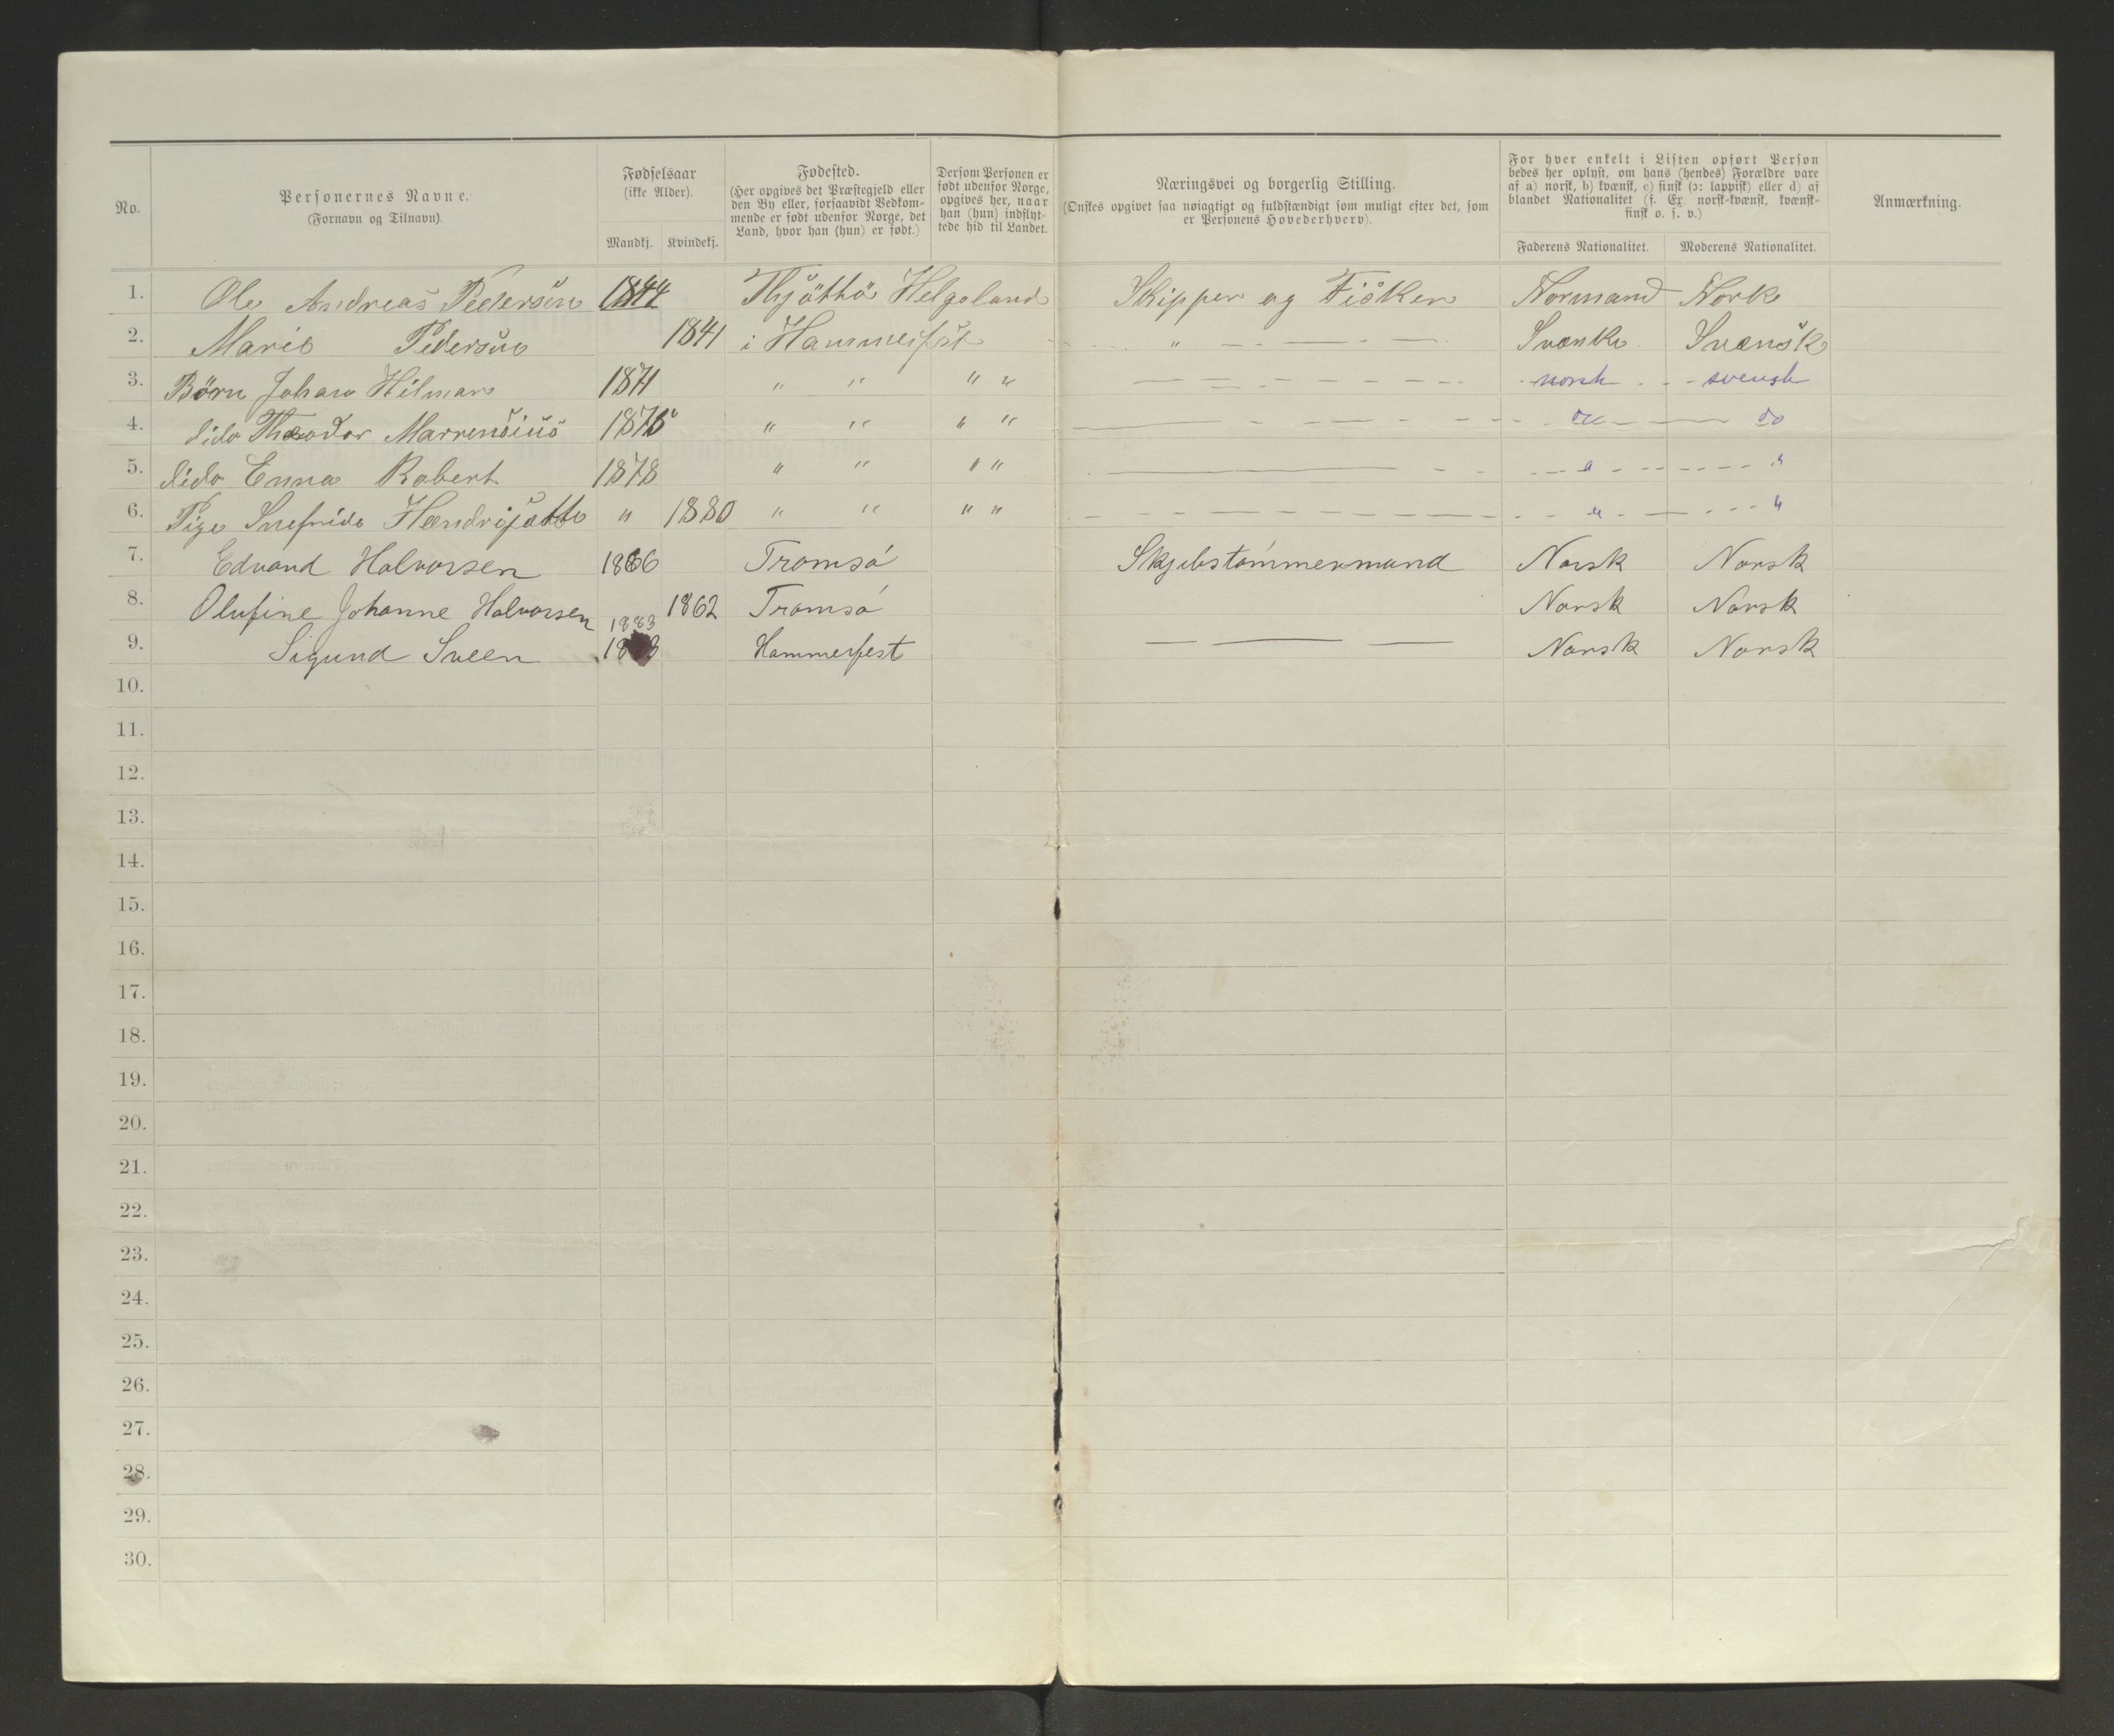 No.
Personernes Navne.
(Fornavn og Tilnavn).
Fødselsaar
(ikke Alder).
Mandkj. Kvindekj.
Fødested.
(Her opgives det Præstegjeld eller
den By eller, forsaavidt Vedkom-
mende er født udenfor Norge, det
Land, hvor han (hun) er født.)
Dersom Personen er
født udenfor Norge,
opgives her, naar
han (hun) indflyt-
tede hid til Landet.
Næringsvei og borgerlig Stilling.
(Ønskes opgivet saa nøiagtigt og fuldstændigt som muligt efter det, som
er Personens Hovederhverv).
For hver enkelt i Listen opført Person
bedes her oplyst, om hans (hendes) Forældre vare
af a) norsk, b) kvænsk, c) finsk (ɔ: lappisk) eller d) af
blandet Nationalitet (f. Ex. norsk-kvænsk, kvænsk-
finsk o. s. v.)
Faderens Nationalitet. Moderens Nationalitet.
Anmærkning.
1. Ole Andreas Pedersen 1844 Thjøttø Helgeland Skipper og Fisker Normand Nork
2. Marie Pedersen 1841 i Hammerfst " Svenke Svensk
3. Børn Johan Hilmar 1871 " " " " norsk svensk
4. dido Theodor Marrensius 1875 " " " " do do
5. dido Enna Robert 1878 " " " " " "
6. Pige Snefride Hendrijette " 1880 " " " " " "
7. Edvard Halvorsen 1866 Tromsø Skjibstømmermand Norsk Norsk
8. Olufine Johanne Halvorsen 1862 Tromsø Norsk Norsk
1883
9. Sigurd Sveen Hammerfest Norsk Norsk
10.
11.
12.
13.
14.
15.
16.
17.
18.
19.
20.
21.
22.
23.
24.
25.
26.
27.
28.
29.
30.